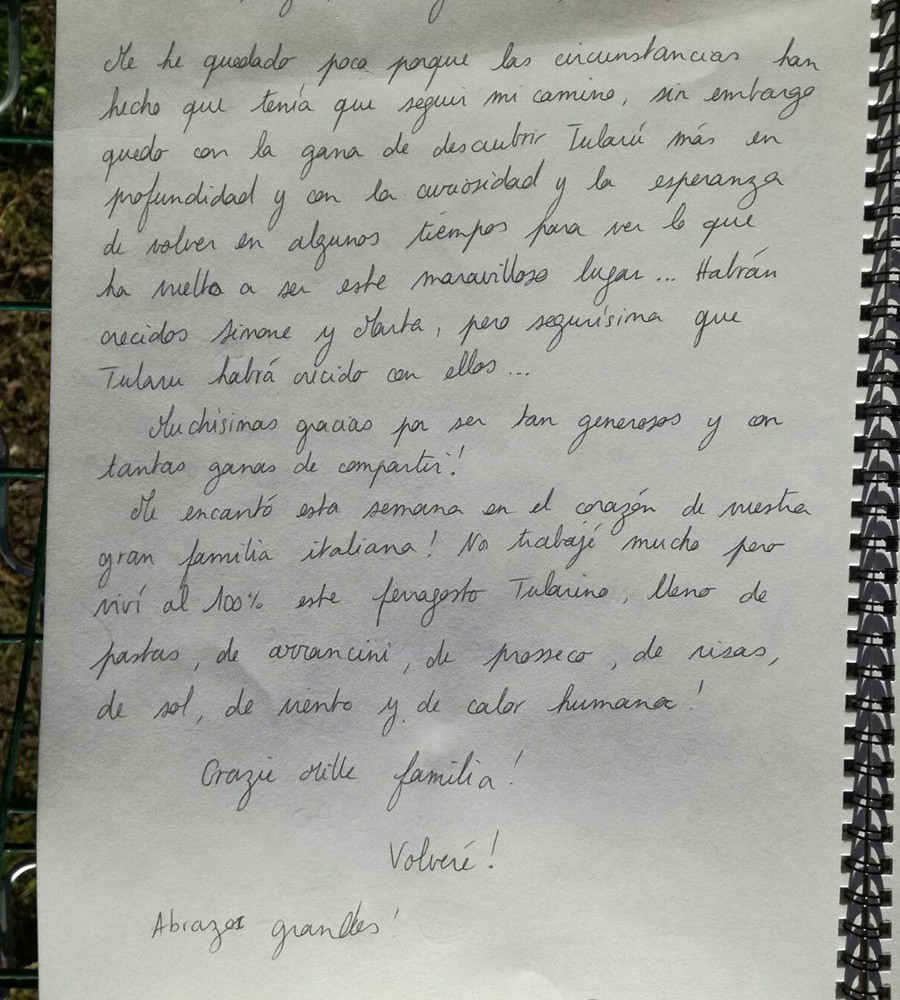 Me he quedado poco porque las circunstancias han
hecho que tenía que seguir mi camino, sin embargo
quedo con la gana de descubrir Tularú más en
profundidad y con la curiosidad y la esperanza
de volver en algunos tiempos para ver lo que
ha vuelto a ser este maravilloso lugar... Habrán
crecidos Simone y Marta, pero segurísima que
Tularu habrá crecido con ellos...
Muchísimas gracias por ser tan generosos y con
tantas ganas de compartir!
Me encantó esta semana en el corazón de vuestra
gran familia italiana! No trabajé mucho pero
viví al 100% este ferragosto Tularino, lleno de
pastas, de arrancini, de prosseco, de risas,
de sol, de viento y de calor humana!
Grazie Mille familia!
Volveré!
Abrazos grandes!